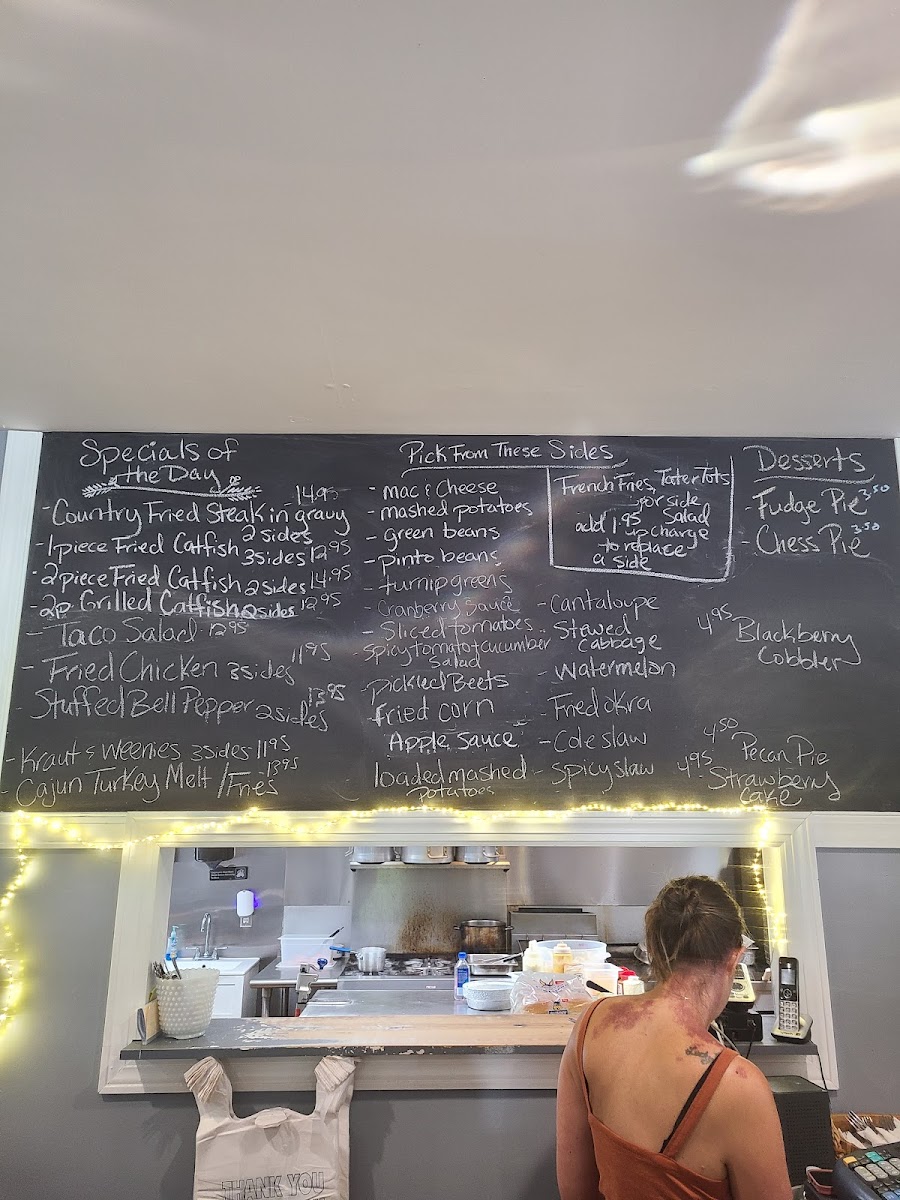 Specials of
the Day
14.95
- Country Fried Steak in gravy
2 sides
- 1 piece Fried Catfish 3 sides 12.95
- 2 piece Fried Catfish 2 sides 14.95
- 2p Grilled Catfish 2 sides 12.95
- Taco Salad 12.95
- Fried Chicken 3 sides 11.95
- Stuffed Bell Pepper 2 sides 13.95
- Kraut & Weenies 3 sides 11.95
- Cajun Turkey Melt / Fries 13.95
Pick From These Sides
- Mac & Cheese
- mashed potatoes
- green beans
- pinto beans
- turnip greens
- Cranberry Sauce
- Sliced tomatoes
- Spicy tomato + cucumber
Salad
- pickled Beets
- fried corn
Apple Sauce
loaded mashed
Potatoes
French Fries, Tater Tots
or side
Salad
add 1.95 upcharge
to replace
a side
- Cantaloupe
- Stewed
Cabbage
- Watermelon
- Fried okra
- Cole slaw
- Spicy slaw
Desserts
- Fudge Pie 3.50
- Chess Pie 3.50
4.95 Blackberry
Cobbler
4.50 Pecan Pie
4.95 Strawberry
Cake
THANK YOU